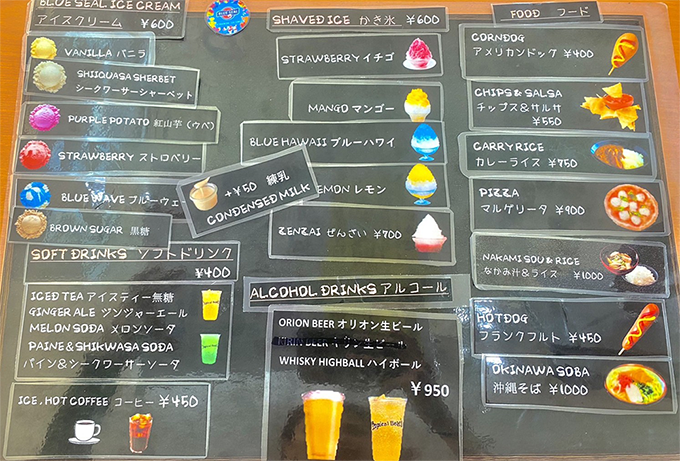 BLUE SEAL ICE CREAM
アイスクリーム ¥600
VANILLA バニラ
SHIIQUASA SHERBET
シークワーサーシャーベット
PURPLE POTATO 紅山芋(ウベ)
STRAWBERRY ストロベリー
BLUE WAVE ブルーウェ
BROWN SUGAR 黒糖
SOFT DRINKS ソフトドリンク
¥400
ICED TEA アイスティー無糖
GINGER ALE ジンジャーエール
MELON SODA メロンソータ
PAINE & SHIKWASA SODA
パイン&シークワーサーソータ
ICE, HOT COFFEE コーヒー ¥450
SHAVED ICE かき氷 ¥600
STRAWBERRY イチゴ
MANGO マンゴー
BLUE HAWAII ブルーハワイ
EMON レモン
+¥50 練乳
CONDENSED MILK
ZENZAI ぜんざい ¥700
ALCOHOL DRINKS アルコール
ORION BEER オリオン生ビール
WHISKY HIGHBALL ハイボール
¥950
FOOD フード
CORNDOG
アメリカンドック ¥400
CHIPS & SALSA
チップス&サルサ
¥550
CARRY RICE
カレーライス ¥750
PIZZA
マルゲリータ ¥900
NAKAMI SOU & RICE
なかみ汁&ライス ¥1000
HOTDOG
フランクフルト ¥450
OKINAWA SOBA
沖縄そば ¥1000